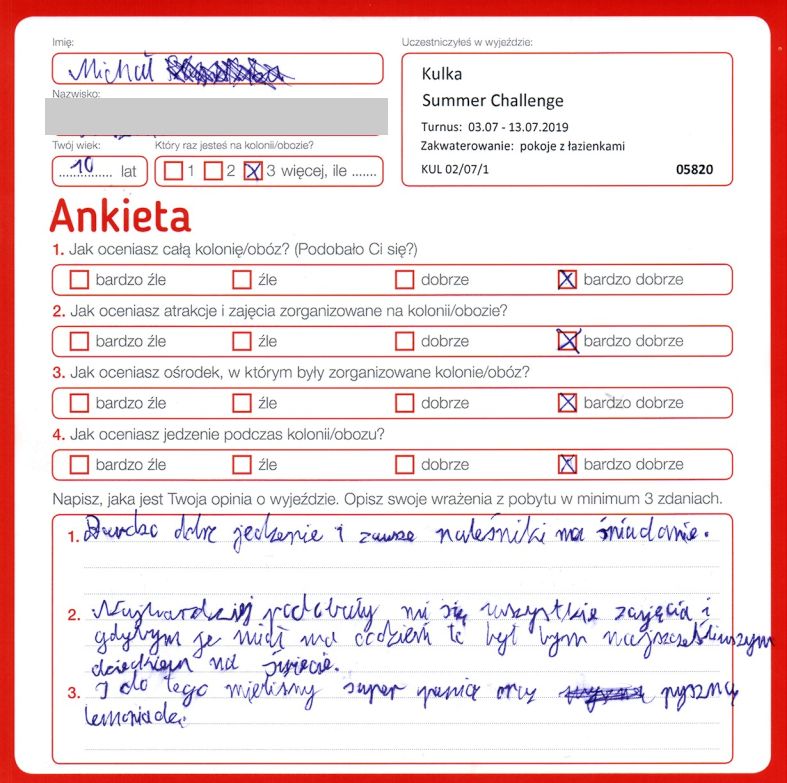 Imię:
Michał
Nazwisko:
Twój wiek:
Który raz jesteś na kolonii/obozie?
10 lat
1 2 3 więcej, ile .......
Uczestniczyłeś w wyjeździe:
Kulka
Summer Challenge
Turnus: 03.07 - 13.07.2019
Zakwaterowanie: pokoje z łazienkami
KUL 02/07/1 05820
Ankieta
1. Jak oceniasz całą kolonię/obóz? (Podobało Ci się?)
bardzo źle źle dobrze bardzo dobrze
2. Jak oceniasz atrakcje i zajęcia zorganizowane na kolonii/obozie?
bardzo źle źle dobrze bardzo dobrze
3. Jak oceniasz ośrodek, w którym były zorganizowane kolonie/obóz?
bardzo źle źle dobrze bardzo dobrze
4. Jak oceniasz jedzenie podczas kolonii/obozu?
bardzo źle źle dobrze bardzo dobrze
Napisz, jaka jest Twoja opinia o wyjeździe. Opisz swoje wrażenia z pobytu w minimum 3 zdaniach.
1. Bardzo dobre jedzenie i zawsze naleśniki na śniadanie.
2. Najbardziej podobały mi się wszystkie zajęcia i
gdybym je miał na codzień to był bym najszczęśliwszym
dzieckiem na świecie.
3. I do tego mieliśmy super pania oraz pyszną
lemoniadę.